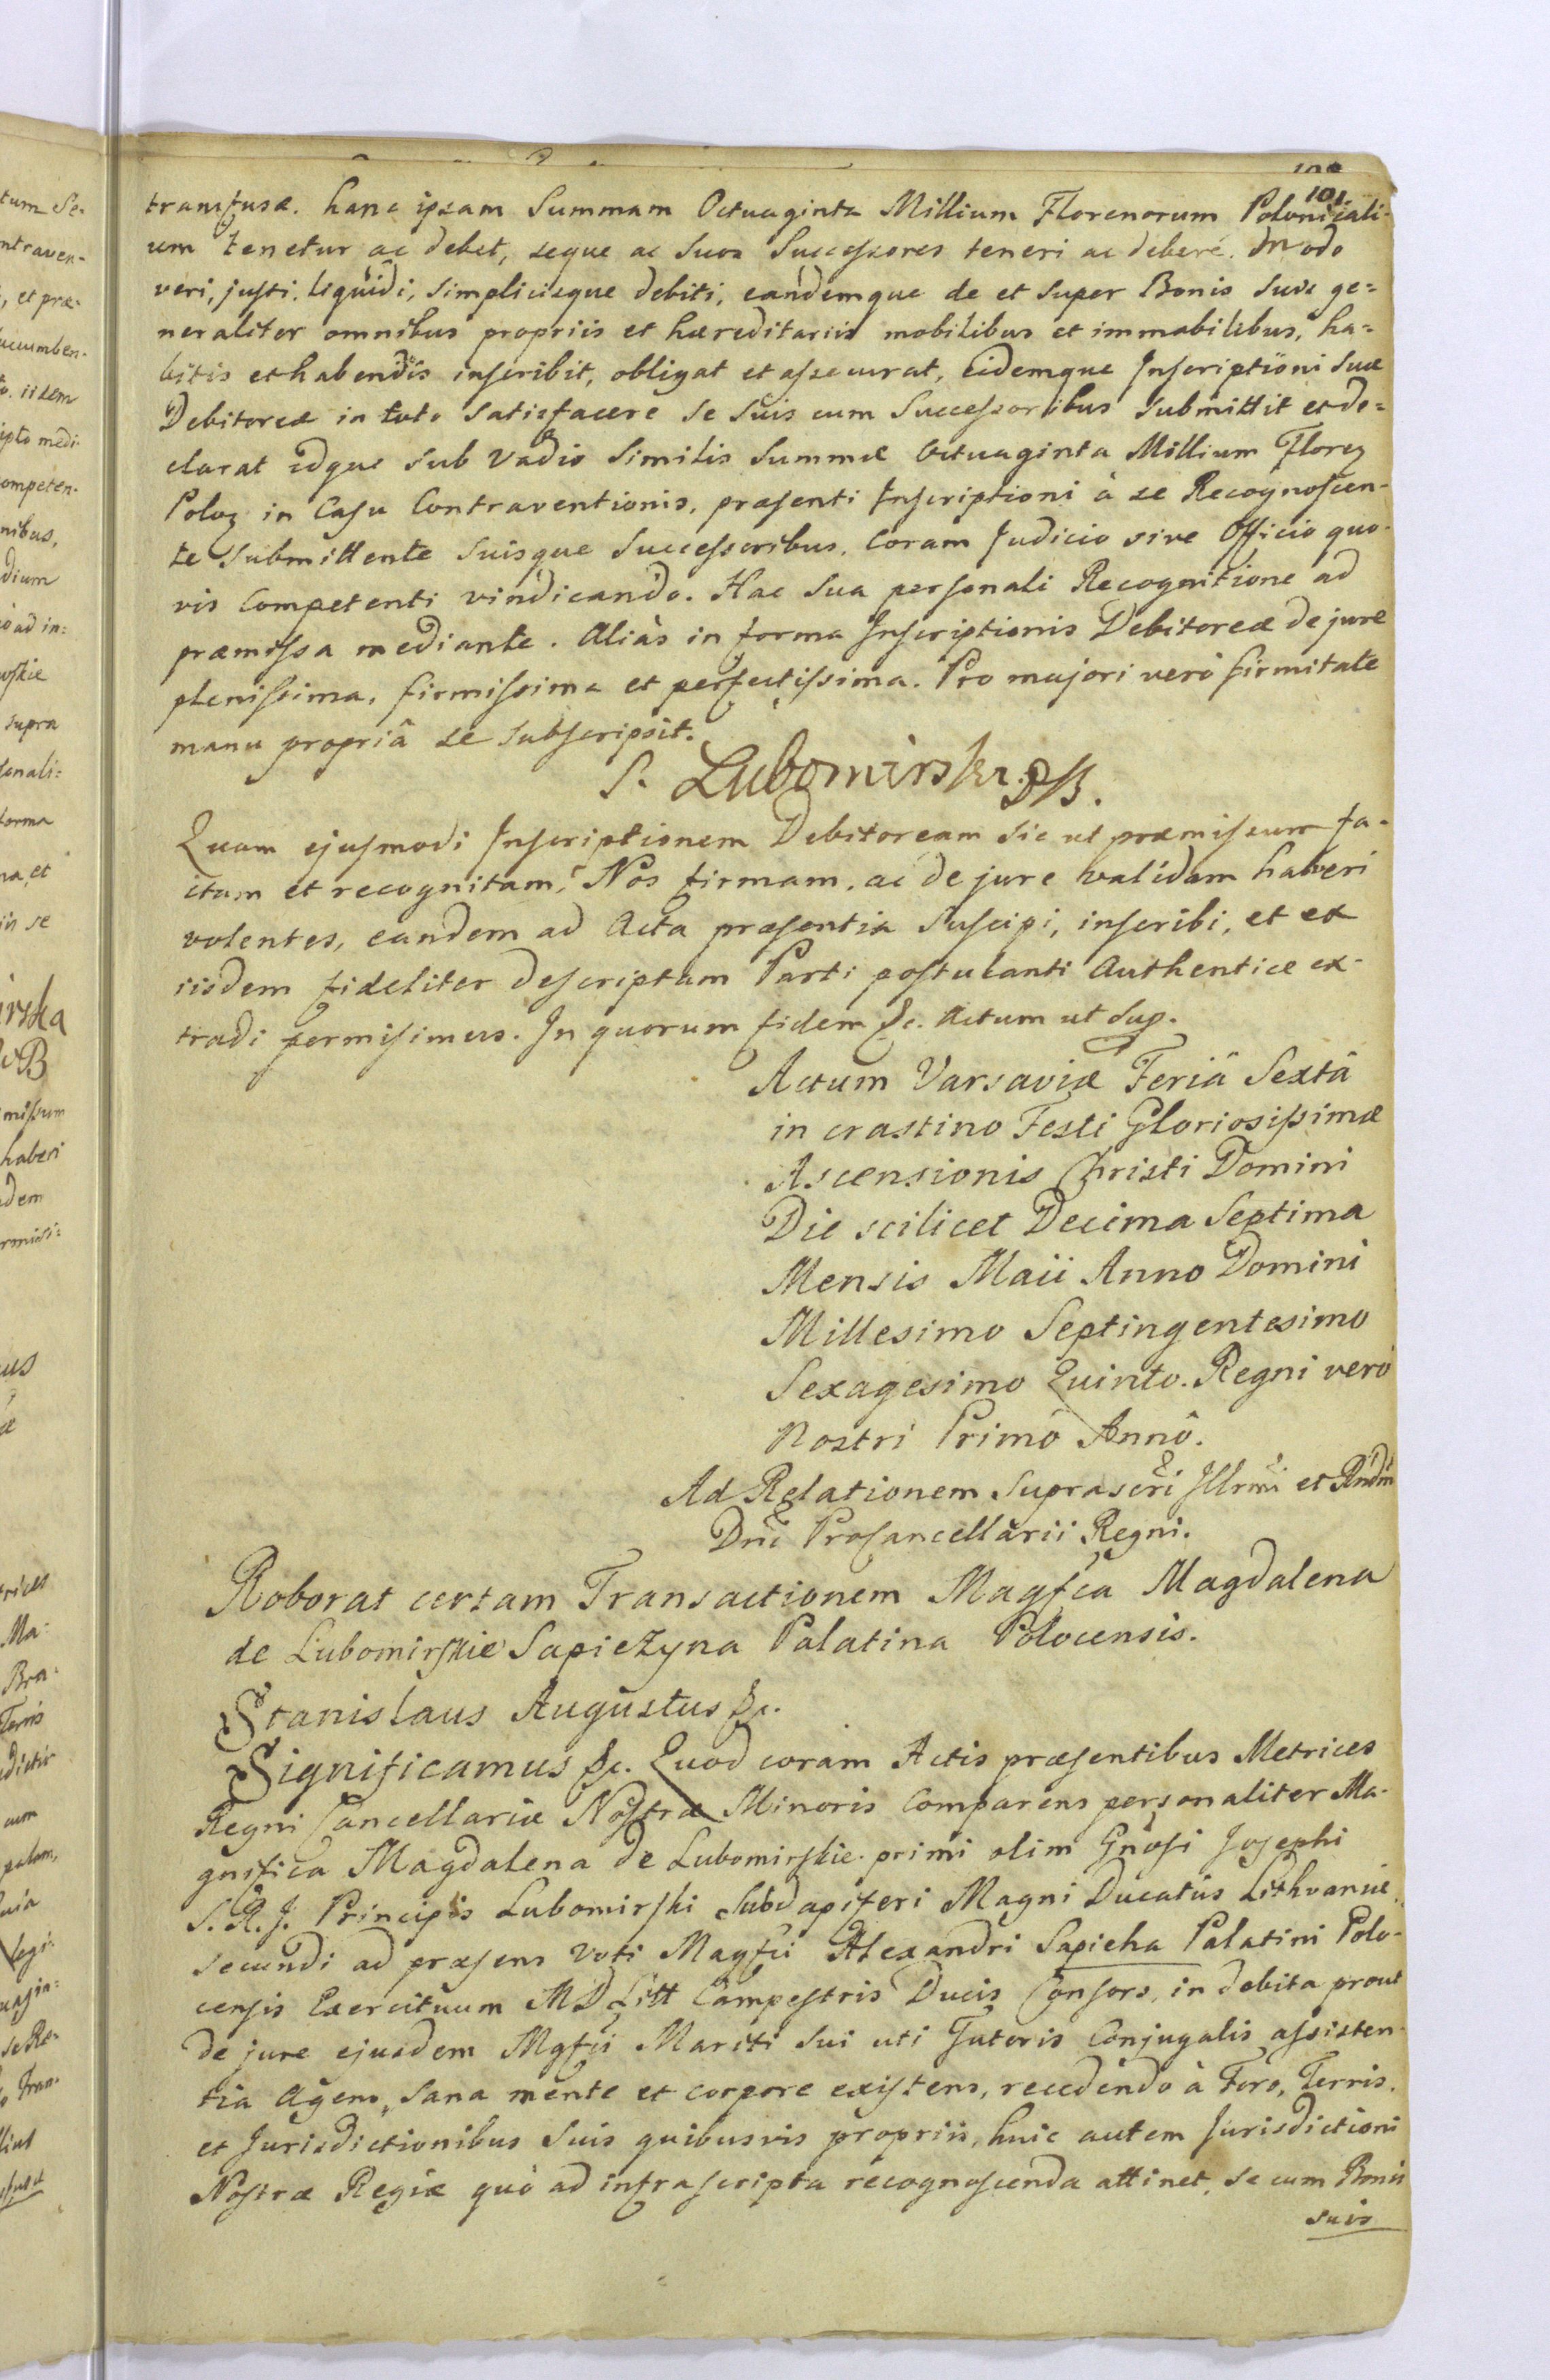 101.
transfusa. hanc ipsam Summam Octuaginta Millium Florenorum Polonicali-
um tenetur ac debet, seque ac Suos Successores teneri ac debere. Modo
veri, justi. liquidi, simplicisque debiti, eandemque de et super Bonis Suis ge=
neraliter omnibus propriis et hæreditariis mobilibus et immobilibus, ha=
bitis et habendis inscribit, obligat et assecurat, eidemque Inscriptioni Suæ
Debitoreæ in toto Satisfacere se Suis cum Successoribus Submittit et de=
clarat idque sub Vadio Similis Summæ Octuaginta Millium Floreq
Poloq in Casu Contraventionis, præsenti Inscriptioni à se Recognoscen-
te Submittente Suisque Successoribus. Coram Judicio sive Officio quo-
vis Competenti vindicando. Hac Sua personali Recognitione ad
præmissa mediante. Aliàs in forma Inscriptionis Debitoreæ de jure
plenissima, firmissima et perfectissima. Pro majori verò firmitate
manu propriâ se Subscripsit.
S. Lubomirski. PB.
Quam ejusmodi Inscriptionem Debitoream Sic ut præmissum fa-
ctam et recognitam, Nos firmam, ac de jure validam haberi
volentes, eandem ad Acta præsentia Suscipi, inscribi, et ex
iisdem fideliter descriptam Parti postulanti Authentice ex-
tradi permisimus. In quorum fidem &c. Actum ut Sup.
Actum Varsaviæ Feriâ Sextâ
in crastino Festi Gloriosissimæ
Ascensionis Christi Domini
Die scilicet Decima Septima
Mensis Maii Anno Domini
Millesimo Septingentesimo
Sexagesimo Quinto. Regni verò
Nostri Primô Annô.
Ad Relationem Suprascri Illrmi et Rndm
Dni ProCancellarii Regni.
Roborat certam Transactionem Magfca Magdalena
de Lubomirskie Sapiezyna Palatina Polocensis.
Stanislaus Augustus &c.
Significamus &c. Quod coram Actis præsentibus Metrices
Regni Cancellariæ Nostræ Minoris Comparens personaliter Ma-
gnifica Magdalena de Lubomirskie. primi olim Gnosi Josephi
S. R. J. Principis Lubomirski Subdapiferi Magni Ducatûs Lithvaniæ,
secundi ad præsens Voti Magfci Alexandri Sapieha Palatini Polo-
censis Exercituum MD Litt Campestris Ducis Consors, in debita prout
de jure ejusdem Mgfci Mariti Sui uti Tutoris Conjugalis assisten-
tia Agens, Sana mente et corpore existens, recedendo à Foro, Terris.
et Jurisdictionibus Suis quibusvis propriis, huic autem Jurisdictioni
Nostræ Regiæ quò ad infrascripta recognoscenda attinet, se cum Bonis
suis